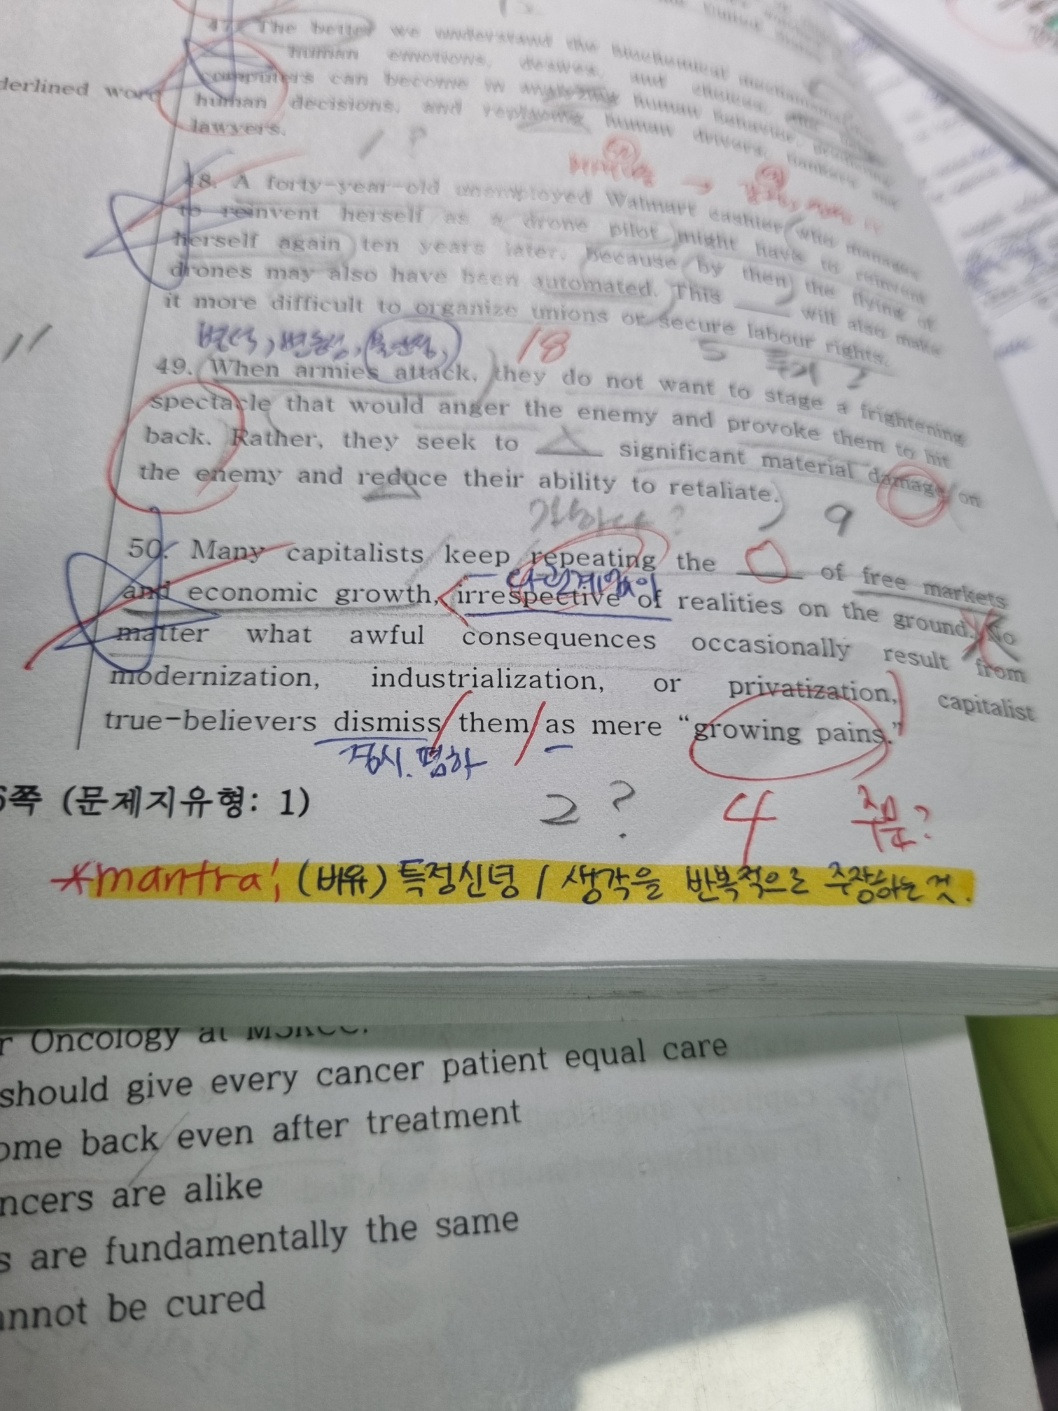 47. The better we understand the biochemical mechanisms
human emotions, desires, and choices,
computers can become in analyzing human behavior,
derlined word
human decisions, and replacing human drivers, bankers and
lawyers.
1 ?
48. A forty-year-old unemployed Walmart cashier who manages
to reinvent herself as a drone pilot might have to reinvent
herself again ten years later, because by then the flying of
drones may also have been automated. This ____ will also make
it more difficult to organize unions or secure labour rights.
18
5
49. When armies attack, they do not want to stage a frightening
spectacle that would anger the enemy and provoke them to hit
back. Rather, they seek to ____ significant material damage on
the enemy and reduce their ability to retaliate.
가하다?
9
50. Many capitalists keep repeating the ____ of free markets
and economic growth, irrespective of realities on the ground. No
matter what awful consequences occasionally result from
modernization, industrialization, or privatization, capitalist
true-believers dismiss them as mere “growing pains.”
무시.폄하
쪽 (문제지유형: 1)
2 ?
4
*mantra; (비유) 특정신념 / 생각을 반복적으로 주장하는 것.
r Oncology at MSKCC.
should give every cancer patient equal care
ome back even after treatment
ncers are alike
s are fundamentally the same
annot be cured